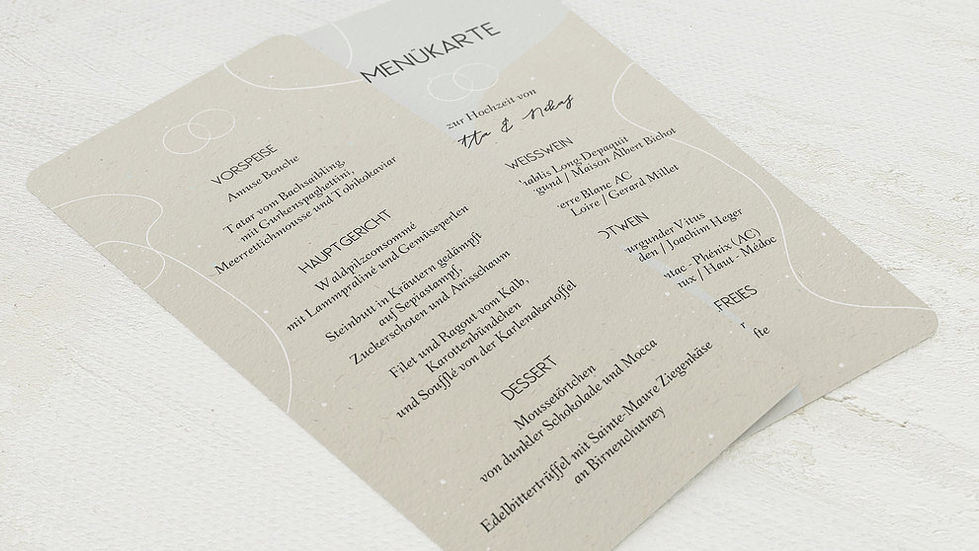 VORSPEISE
Amuse Bouche
Tatar vom Bachsaibling,
mit Gurkenspaghettini,
Meerrettichmousse und Tobikokaviar
HAUPTGERICHT
Waldpilzconsommé
mit Lammpraliné und Gemüseperlen
Steinbutt in Kräutern gedämpft
auf Sepiastampf,
Zuckerschoten und Anisschaum
Filet und Ragout vom Kalb,
Karottenbündchen
und Soufflé von der Karlenakartoffel
DESSERT
Moussetörtchen
von dunkler Schokolade und Mocca
Edelbittertrüffel mit Sainte-Maure Ziegenkäse
an Birnenchutney
MENÜKARTE
zur Hochzeit von
tta & Niklas
WEISSWEIN
ablis Long-Depaquit
gund / Maison Albert Bichot
erre Blanc AC
Loire / Gerard Millet
OTWEIN
urgunder Vitus
den / Joachim Heger
ntac - Phénix (AC)
ux / Haut - Médoc
FREIES
fte